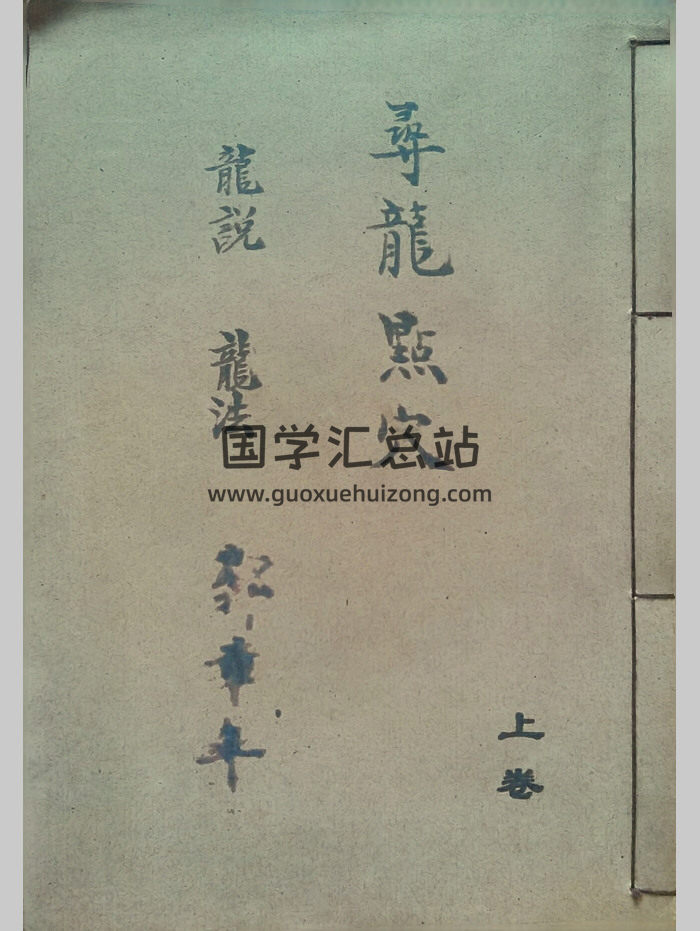 上卷
尋龍點穴
龍說 龍法
章年
国学汇总站
www.guoxuehuizong.com